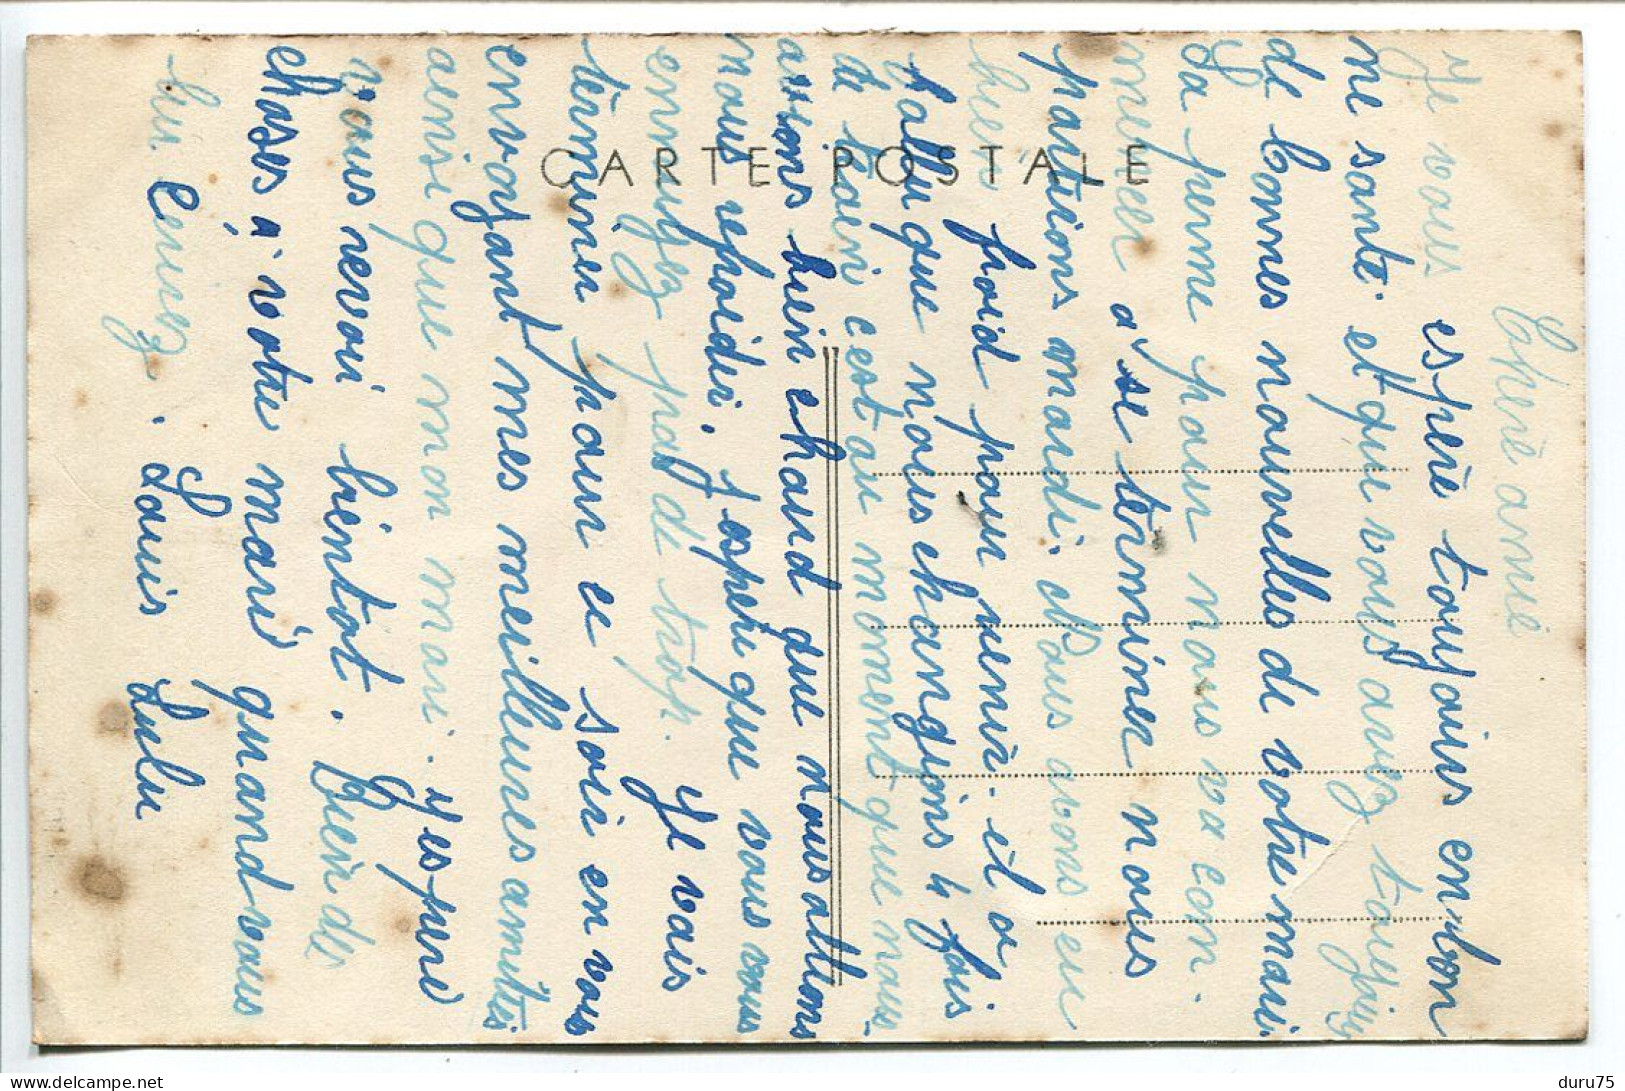 Chere amie
Je vous espère toujours en bon
ne santé. et que vous avez toujour
de bonnes nouvelles de votre mari.
La perme pour nous va com-
mencer a se terminer nous
partions mardi. Nous avons eu
bien froid pour venir. il a
fallu que nous changions 4 fois
de train c'est au moment que nous
avions bien chaud que nous allions
nous refroidir. j'espère que vous vous
ennuyez pas de trop. Je vais
terminer pour ce soir en vous
envoyant mes meilleures amitiés
ainsi que mon mari. J'espère
vous revoir bientot. Bien des
choses à votre mari quand vous
lui écrirez. Louis Lulu
CARTE POSTALE
delcampe.net
duru75